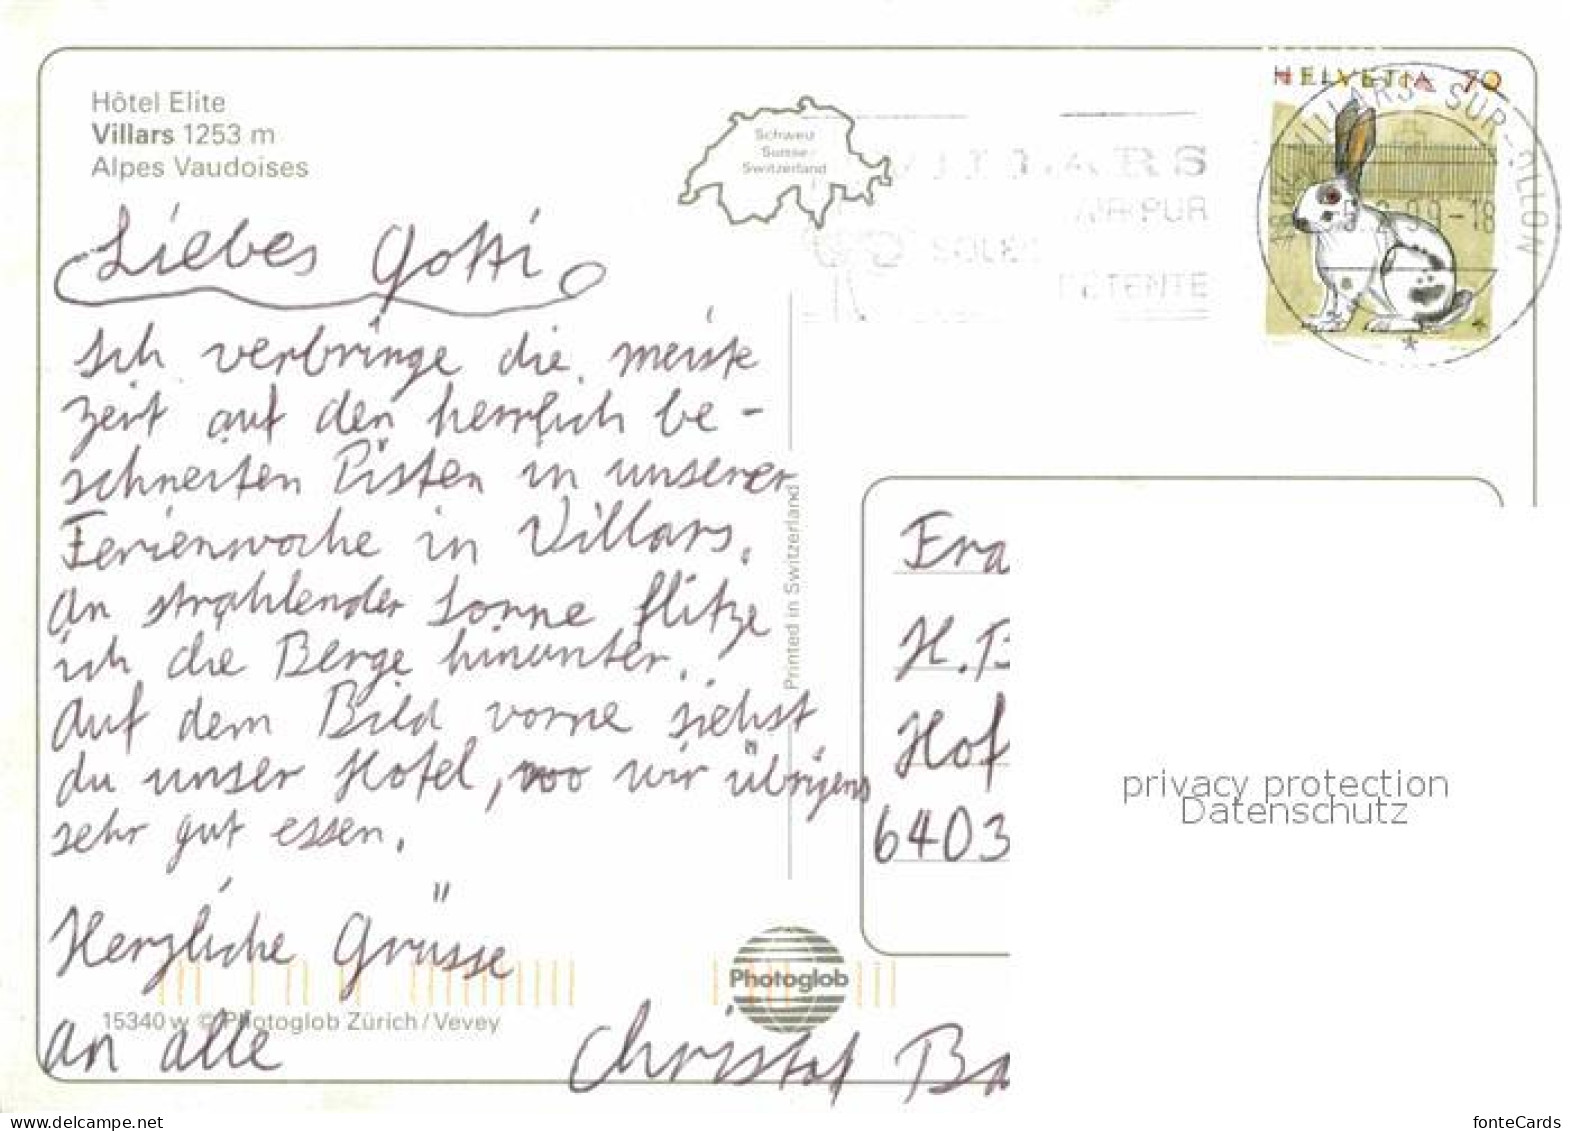 Hôtel Elite
Villars 1253 m
Alpes Vaudoises
Schweiz
Suisse
Switzerland
VILLARS
AIR PUR
SOLEIL
DETENTE
HELVETIA 70
VILLARS-SUR-OLLON
5.2.99-18
Liebes Gotti
Ich verbringe die meiste
Zeit auf den herrlich be-
schneiten Pisten in unserer
Ferienwoche in Villars.
An strahlender Sonne flitze
ich die Berge hinunter.
Auf dem Bild vorne siehst
du unser Hotel, wo wir übrigens
sehr gut essen.
Herzliche Grüsse
an alle
Christof Ba
Printed in Switzerland
Fra
H. B
Hof
6403
privacy protection
Datenschutz
Photoglob
15340 w © Photoglob Zürich / Vevey
www.delcampe.net
fonteCards